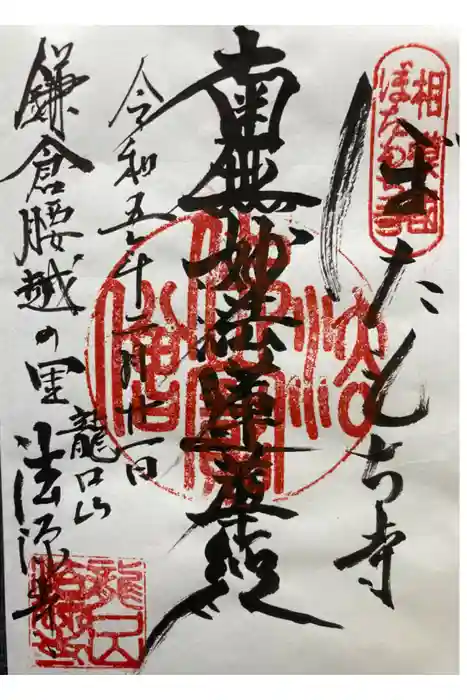 相模國
ぼたもち寺
ぼたもち寺
南無妙法蓮華經
令和五年十二月廿一日
龍口山
鎌倉腰越の里 法源寺